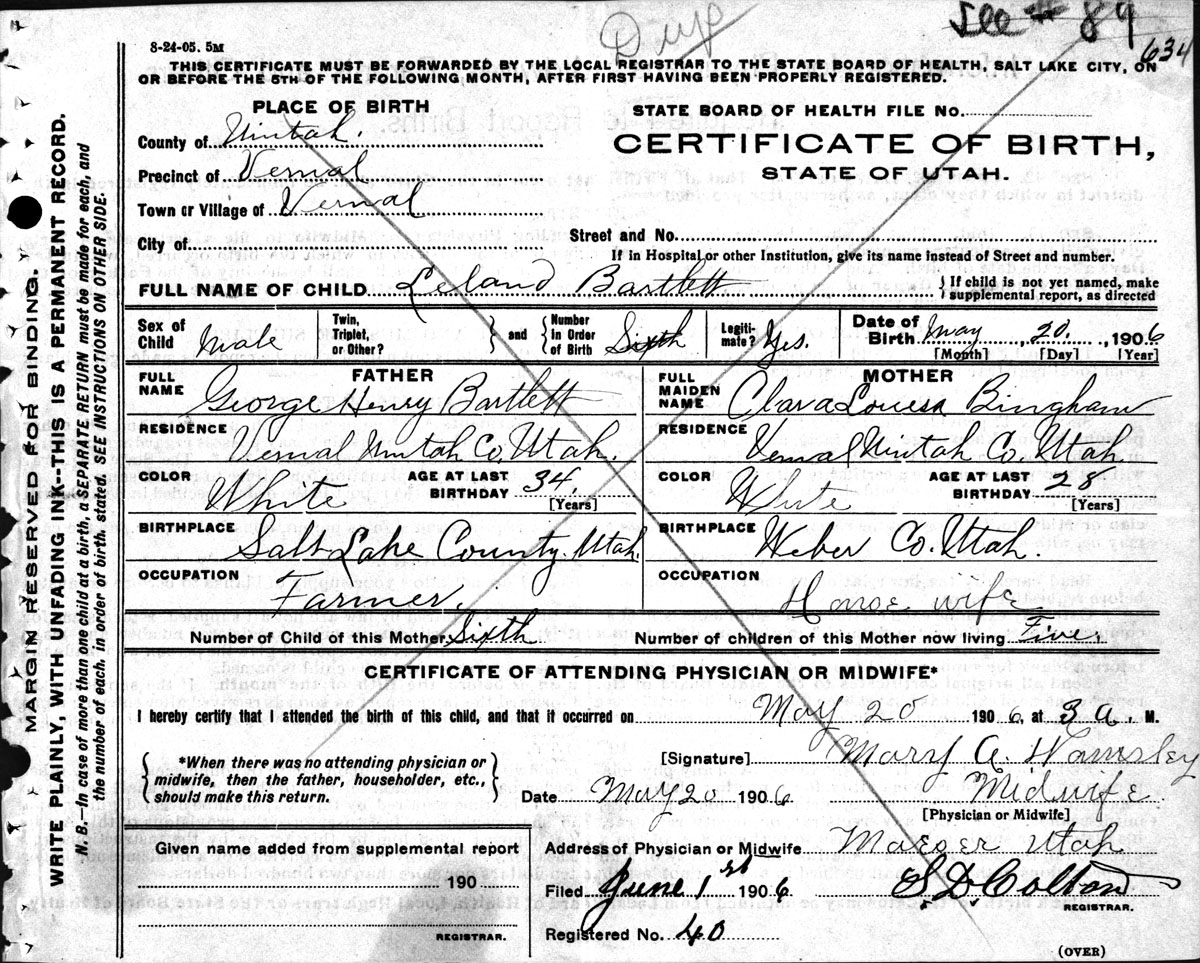 Dup
See # 89
634
8-24-05. 5M
THIS CERTIFICATE MUST BE FORWARDED BY THE LOCAL REGISTRAR TO THE STATE BOARD OF HEALTH, SALT LAKE CITY, ON
OR BEFORE THE 5TH OF THE FOLLOWING MONTH, AFTER FIRST HAVING BEEN PROPERLY REGISTERED.
PLACE OF BIRTH
County of Uintah.
Precinct of Vernal
Town or Village of Vernal
City of
STATE BOARD OF HEALTH FILE No.
CERTIFICATE OF BIRTH,
STATE OF UTAH.
Street and No.
If in Hospital or other Institution, give its name instead of Street and number.
FULL NAME OF CHILD Leland Bartlett
If child is not yet named, make
supplemental report, as directed
Sex of Child Male
Twin, Triplet, or Other?
and
Number in Order of Birth Sixth
Legiti-mate? Yes.
Date of Birth May 20. 1906
[Month] [Day] [Year]
FATHER
FULL NAME George Henry Bartlett
RESIDENCE
Vernal Uintah Co. Utah.
COLOR White
AGE AT LAST BIRTHDAY 34.
[Years]
BIRTHPLACE
Salt Lake County. Utah.
OCCUPATION
Farmer.
MOTHER
FULL MAIDEN NAME Clara Louesa Bingham
RESIDENCE
Vernal Uintah Co. Utah
COLOR White
AGE AT LAST BIRTHDAY 28
[Years]
BIRTHPLACE
Weber Co. Utah.
OCCUPATION
House wife
Number of Child of this Mother Sixth
Number of children of this Mother now living Five.
CERTIFICATE OF ATTENDING PHYSICIAN OR MIDWIFE*
I hereby certify that I attended the birth of this child, and that it occurred on May 20 1906 at 3 a. M.
*When there was no attending physician or
midwife, then the father, householder, etc.,
should make this return.
[Signature] Mary A. Hamsley
Date May 20 1906 Midwife
[Physician or Midwife]
Address of Physician or Midwife Maeser Utah
Given name added from supplemental report
190
REGISTRAR.
Filed June 1st 1906 S D Colton
REGISTRAR.
Registered No. 40
(OVER)
MARGIN RESERVED FOR BINDING.
WRITE PLAINLY, WITH UNFADING INK--THIS IS A PERMANENT RECORD.
N. B.—In case of more than one child at a birth, a SEPARATE RETURN must be made for each, and
the number of each, in order of birth, stated. SEE INSTRUCTIONS ON OTHER SIDE.